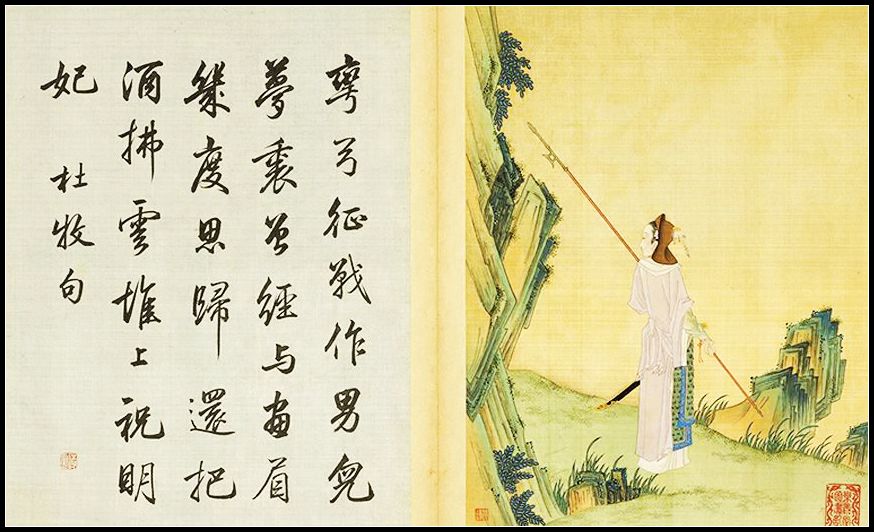 彎弓征戰作男兒
夢裏曾經与畫眉
幾度思歸還把
酒拂雲堆上祝明
妃 杜牧句